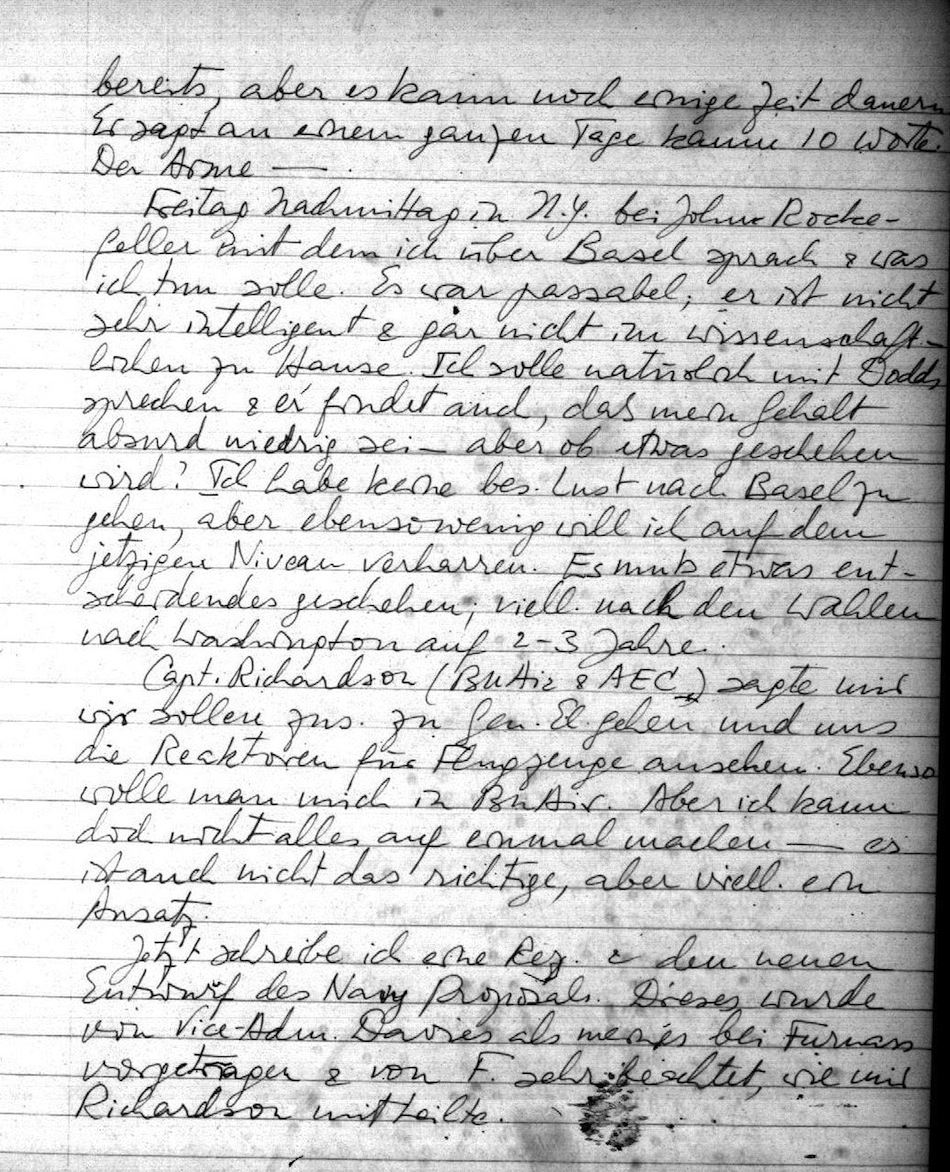 bereits, aber es kann noch einige Zeit dauern
Er sagt an einem ganzen Tage kaum 10 Worte.
Der Arme —
Freitag Nachmittag in N.Y. bei John Rocke-
feller mit dem ich über Basel sprach & was
ich tun solle. Es war passabel; er ist nicht
sehr intelligent & gar nicht im wissenschaft-
lichen zu Hause. Ich solle natürlich mit Dodds
sprechen & er findet auch, das mein Gehalt
absurd niedrig sei — aber ob etwas geschehen
wird? Ich habe keine bes. Lust nach Basel zu
gehen, aber ebensowenig will ich auf dem
jetzigen Niveau verharren. Es muß etwas ent-
scheidendes geschehen; viell. nach den Wahlen
nach Washington auf 2-3 Jahre.
Capt. Richardson (BuAir & AEC) sagte mir
wir sollen zus. zu Gen. El. gehen und uns
die Reaktoren für Flugzeuge ansehen. Ebenso
wolle man mich in BuAir. Aber ich kann
doch nicht alles auf einmal machen — es
ist auch nicht das richtige, aber viell. ein
Ansatz.
Jetzt schreibe ich eine Rez. & den neuen
Entwurf des Navy Proposals. Dieses wurde
von Vice-Adm. Davies als meines bei Furnass
vorgetragen & von F. sehr beachtet, wie mir
Richardson mitteilte.